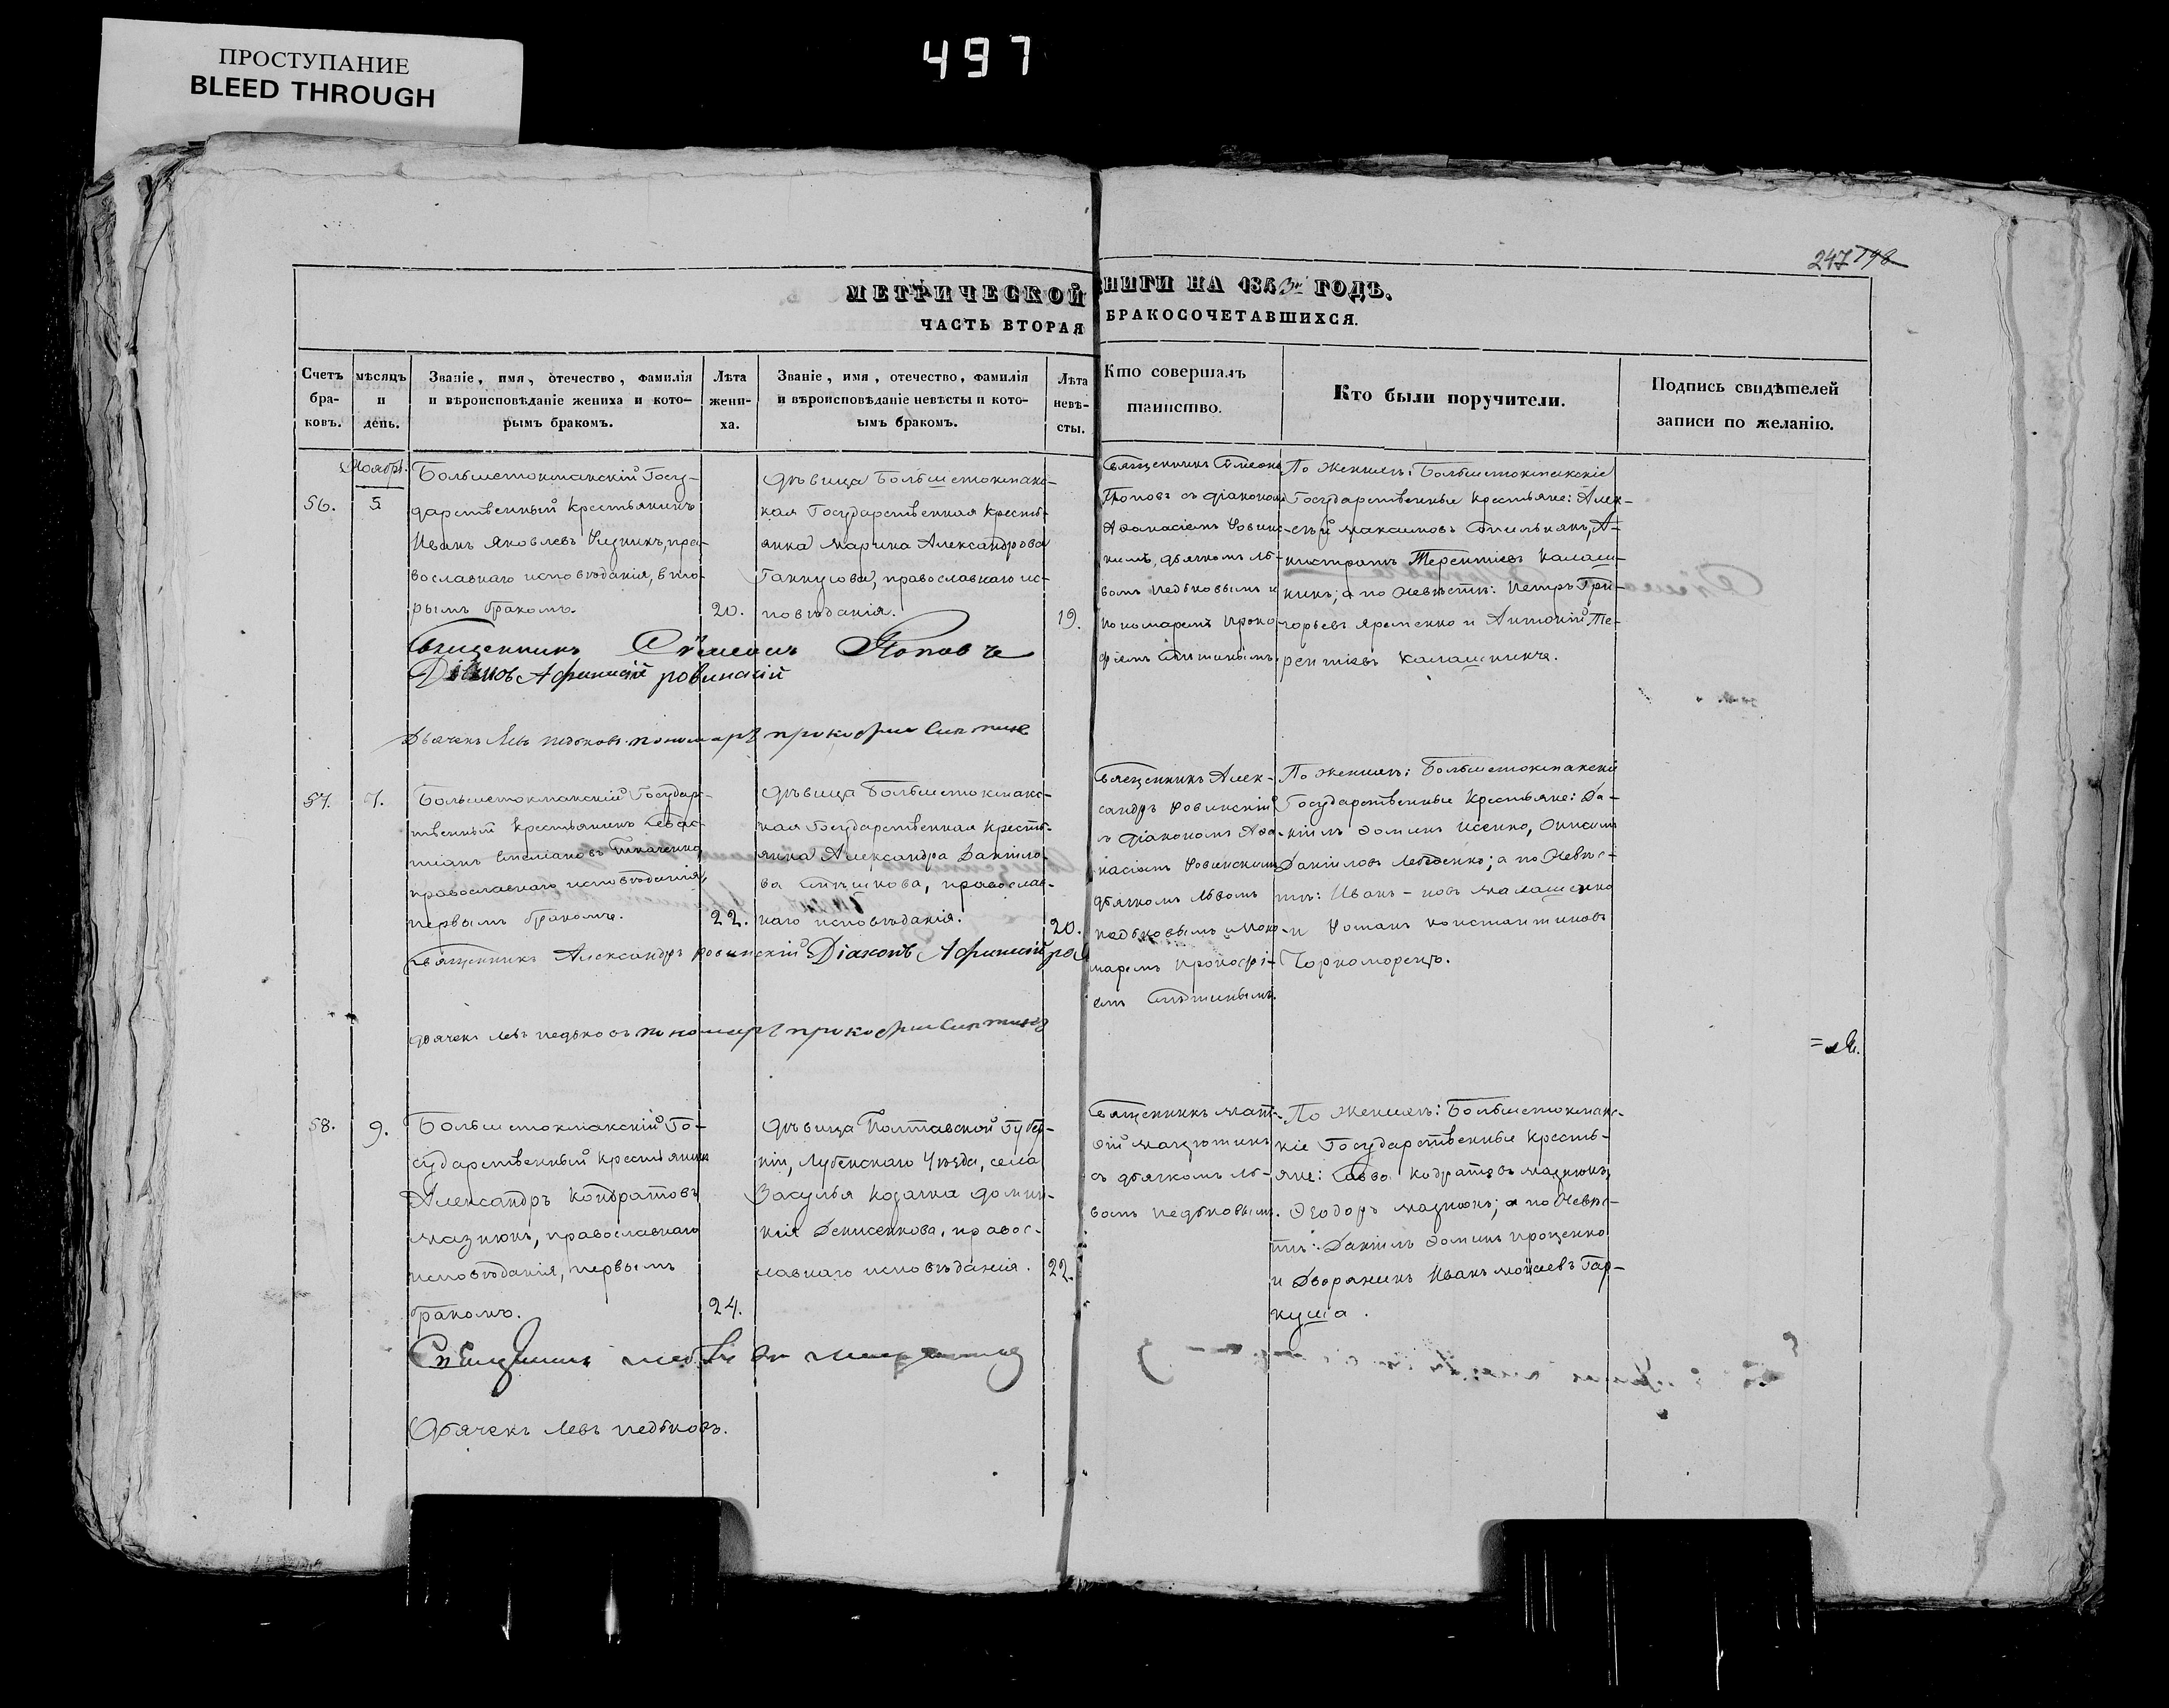 ПРОСТУПАНИЕ
BLEED THROUGH
497
247 198
МЕТРИЧЕСКОЙ КНИГИ НА 1843й ГОДЪ.
ЧАСТЬ ВТОРАЯ БРАКОСОЧЕТАВШИХСЯ.
Счетъ бра-ковъ.
мѣсяцъ и день.
Званіе, имя, отечество, фамилія
и вѣроисповѣданіе жениха и кото-
рымъ бракомъ.
Лѣта жени-ха.
Званіе, имя, отечество, фамилія
и вѣроисповѣданіе невѣсты и кото-
ымъ бракомъ.
Лѣта невѣ-сты.
Кто совершалъ
таинство.
Кто были поручители.
Подпись свидѣтелей
записи по желанію.
56.
Ноябрь.
5
Большетокмакскій Госу-
дарственный Крестьянинъ
Иванъ Яковлевъ
православнаго исповѣданія, вто-
рымъ бракомъ.
20.
Дѣвица Большетокмакс-
кая Государственная Кресть-
янка Марина Александрова
православнаго ис-
повѣданія.
19.
Священникъ Сѵмеонъ
Поповъ съ Діакономъ
Аѳанасіемъ Ровинс-
кимъ, дьячкомъ Ль-
вомъ Педьковымъ и
Пономаремъ Проко-
фіемъ
По Женихѣ: Большетокмакскіе
Государственные Крестьяне: Алек-
сѣй Максимовъ А-
нистратъ Терентіевъ Калаш-
никъ; а по Невѣстѣ: Петръ Гри-
горьевъ Яременко и Антоній Те-
рентіевъ Калашникъ.
Священникъ Сѵмеонъ Поповъ
Діаконъ Афанасій Ровинскій
Дьячекъ Левъ Педьковъ. пономарь прокофий
57.
7.
Большетокмакскій Государ-
твенный Крестьянинъ Севас-
тіанъ Емеліановъ Ткаченко,
православнаго исповѣданія,
первымъ бракомъ.
22.
Дѣвица Большетокмакс-
кая Государственная Кресть-
янка Александра Даніило-
ва православ-
наго исповѣданія.
20.
Священникъ Алек-
сандръ Ровинскій
съ Діакономъ Аѳа-
насіемъ Ровинскимъ
дьячкомъ Львомъ
Педьковымъ и Поно-
маремъ Прокофі-
емъ
По Женихѣ: Большетокмакскіе
Государственные Крестьяне: Да-
ніилъ Ѳоминъ Исенко,
Даніиловъ а по Невѣс-
тѣ: Иванъ Малашенко
и Романъ Константиновъ
Чорноморецъ.
Священникъ Александръ Ровинскій Діаконъ Афанасій ро
Дьячекъ Левъ Педьковъ пономарь прокофий
58.
9.
Большетокмакскій Го-
сударственный Крестьянинъ
Александръ Кондратовъ
Мазнюкъ, православнаго
исповѣданія, первымъ
бракомъ.
24.
Дѣвица Полтавской Губер-
ніи, Лубенскаго Уѣзда, села
Засулья Козачка Домни-
кія Денисенкова, правос-
лавнаго исповѣданія.
22.
Священникъ Мат-
ѳій
съ дьячкомъ Ль-
вомъ Педьковымъ.
По Женихѣ: Большетокмакс-
кіе Государственные Кресть-
яне: Савва Кодратовъ Мазнюкъ,
Ѳеодоръ Мазнюкъ; а по Невѣс-
тѣ: Даніилъ Ѳоминъ Проценко
и Дворянинъ Иванъ Моисеевъ Гар-
куша.
Священникъ
Дьячекъ Левъ Педьковъ.